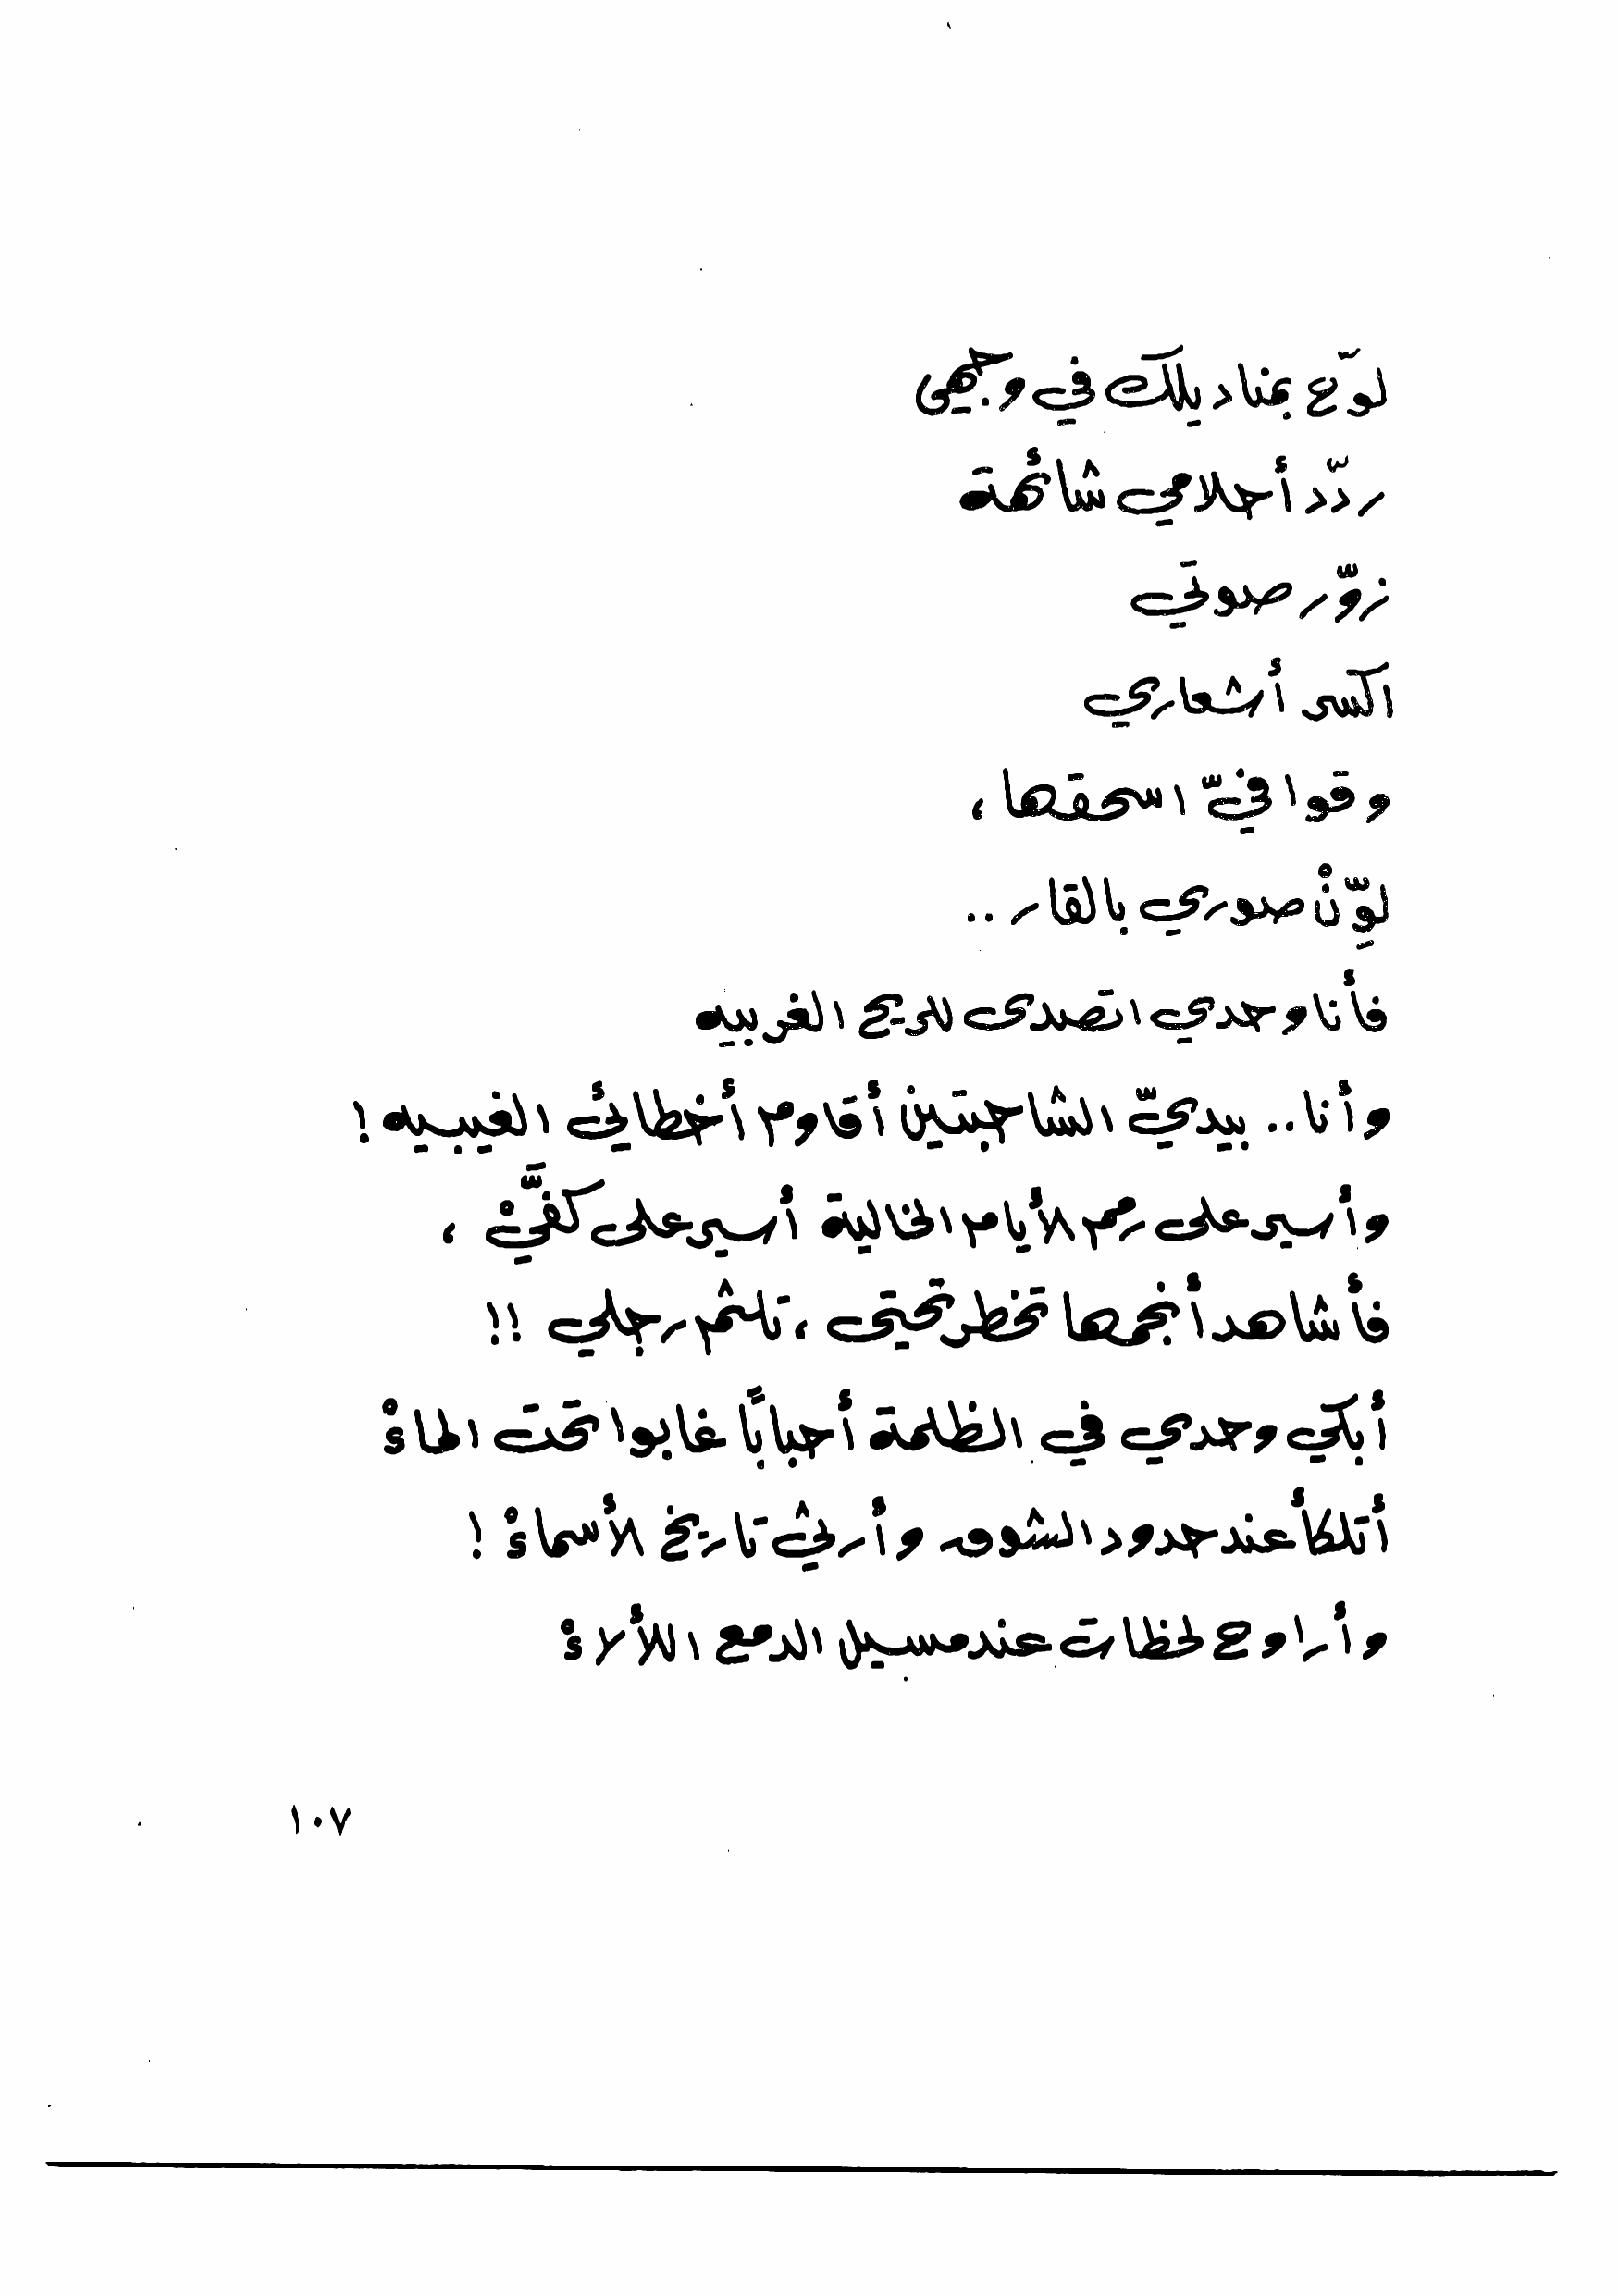 لوّح بمناديلك في وجهي
ردّد أحلامي شائهة
زوّر صوتي
اكسر أشعاري
وقوافيّ اسحقها ،
لوِّنْ صوري بالقار ..
فأنا وحدي اتصدى للريح الغربيه
وأنا .. بيديّ الشاحبتين أقاوم أخطائي الغيبيه !
وأسير على رمم الأيام الخالية أسير على كفَّيْ ،
فأشاهد أنجمها تخطر تحتي ، تلثم رجلي !!
أبكي وحدي في الظلمة أحبابًا غابوا تحت الماءْ
أتلكأ عند حدود الشوق وأرثي تاريخ الأسماءْ !
وأراوح لحظات عند مسيل الدمع اللألاءْ
١٠٧